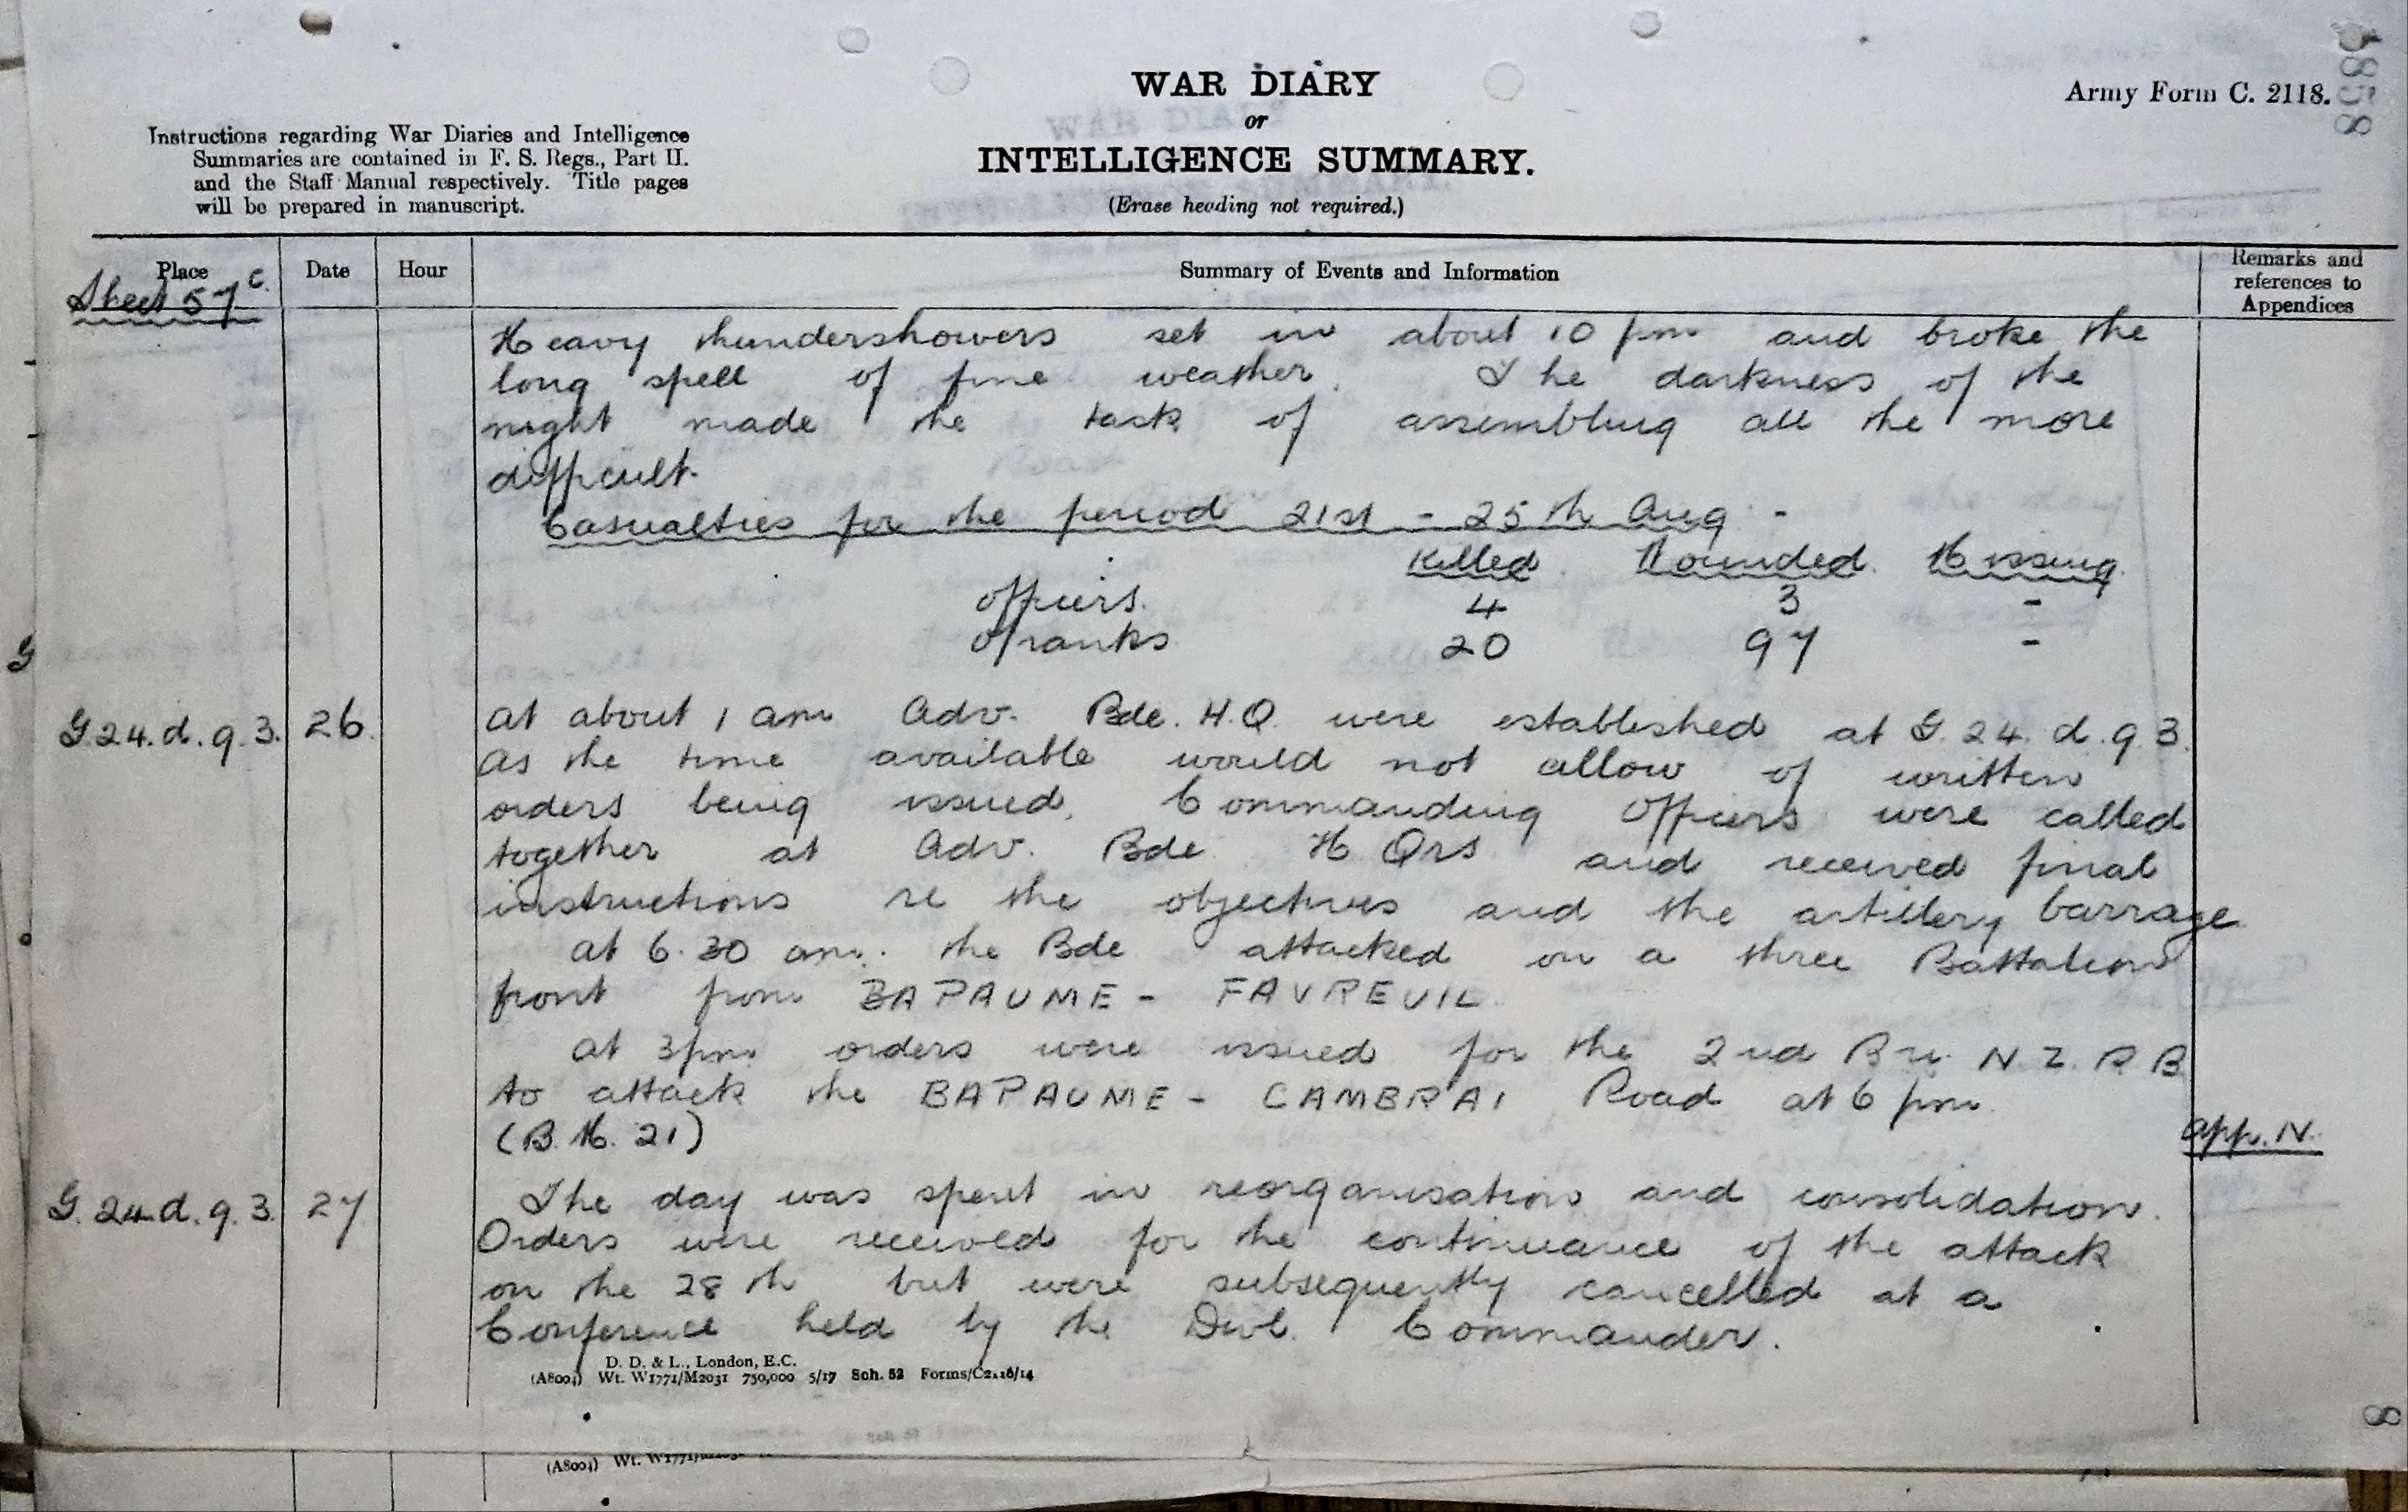 WAR DIARY
or
INTELLIGENCE SUMMARY.
(Erase heading not required.)
Army Form C. 2118.
Instructions regarding War Diaries and Intelligence
Summaries are contained in F. S. Regs., Part II.
and the Staff Manual respectively. Title pages
will be prepared in manuscript.
Place Date Hour Summary of Events and Information Remarks and references to Appendices
Sheet 57c.
Heavy thundershowers set in about 10 pm and broke the
long spell of fine weather. The darkness of the
night made the task of assembling all the more
difficult.
Casualties for the period 21st - 25th Aug -
Killed. Wounded. Missing.
Officers. 4 3 -
O/ranks 20 97 -
G
G.24.d.9.3. 26. At about 1 am Adv. Bde. H.Q. were established at G.24.d.9.3.
As the time available would not allow of written
orders being issued, Commanding Officers were called
together at Adv. Bde H Qrs and received final
instructions re the objectives and the artillery barrage
At 6.30 am. the Bde attacked on a three Battalion
front from BAPAUME - FAVREUIL.
At 3pm orders were issued for the 2nd Bn. N.Z.R.B
to attack the BAPAUME - CAMBRAI Road at 6 pm.
(B.M. 21) App. N.
G.24.d.9.3. 27 The day was spent in reorganisation and consolidation.
Orders were received for the continuance of the attack
on the 28th but were subsequently cancelled at a
Conference held by the Divl. Commander.
D. D. & L., London, E.C.
(A8004) Wt. W1771/M2031 750,000 5/17 Sch. 52 Forms/C2118/14
8
(A8004)